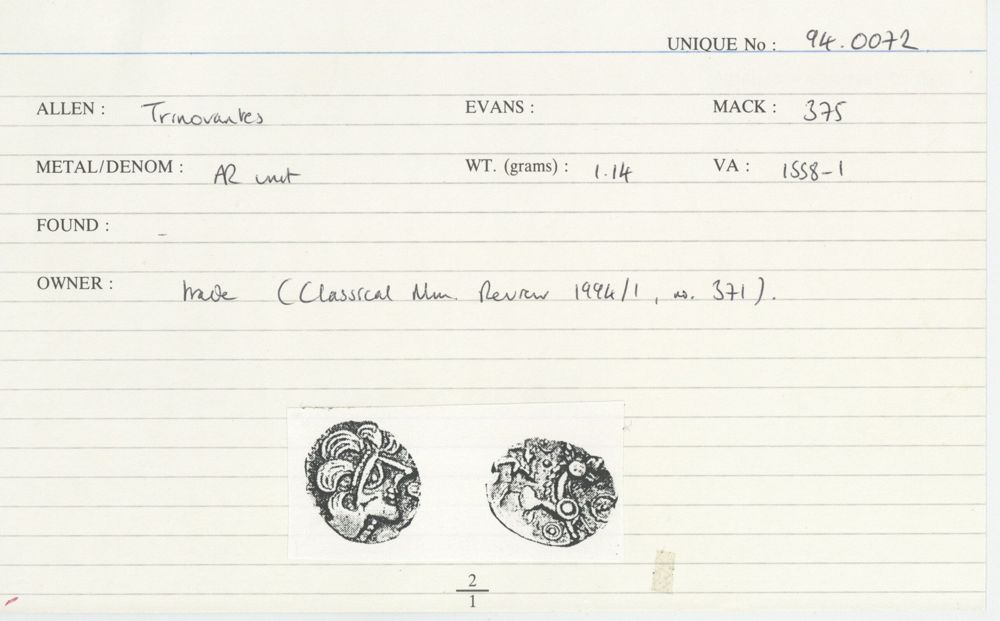 UNIQUE No : 94.0072
ALLEN : Trinovantes EVANS : MACK : 375
METAL/DENOM : AR unit WT. (grams) : 1.14 VA : 1558-1
FOUND : –
OWNER : trade (Classical Num. Review 1994/1, no. 371).
2
1